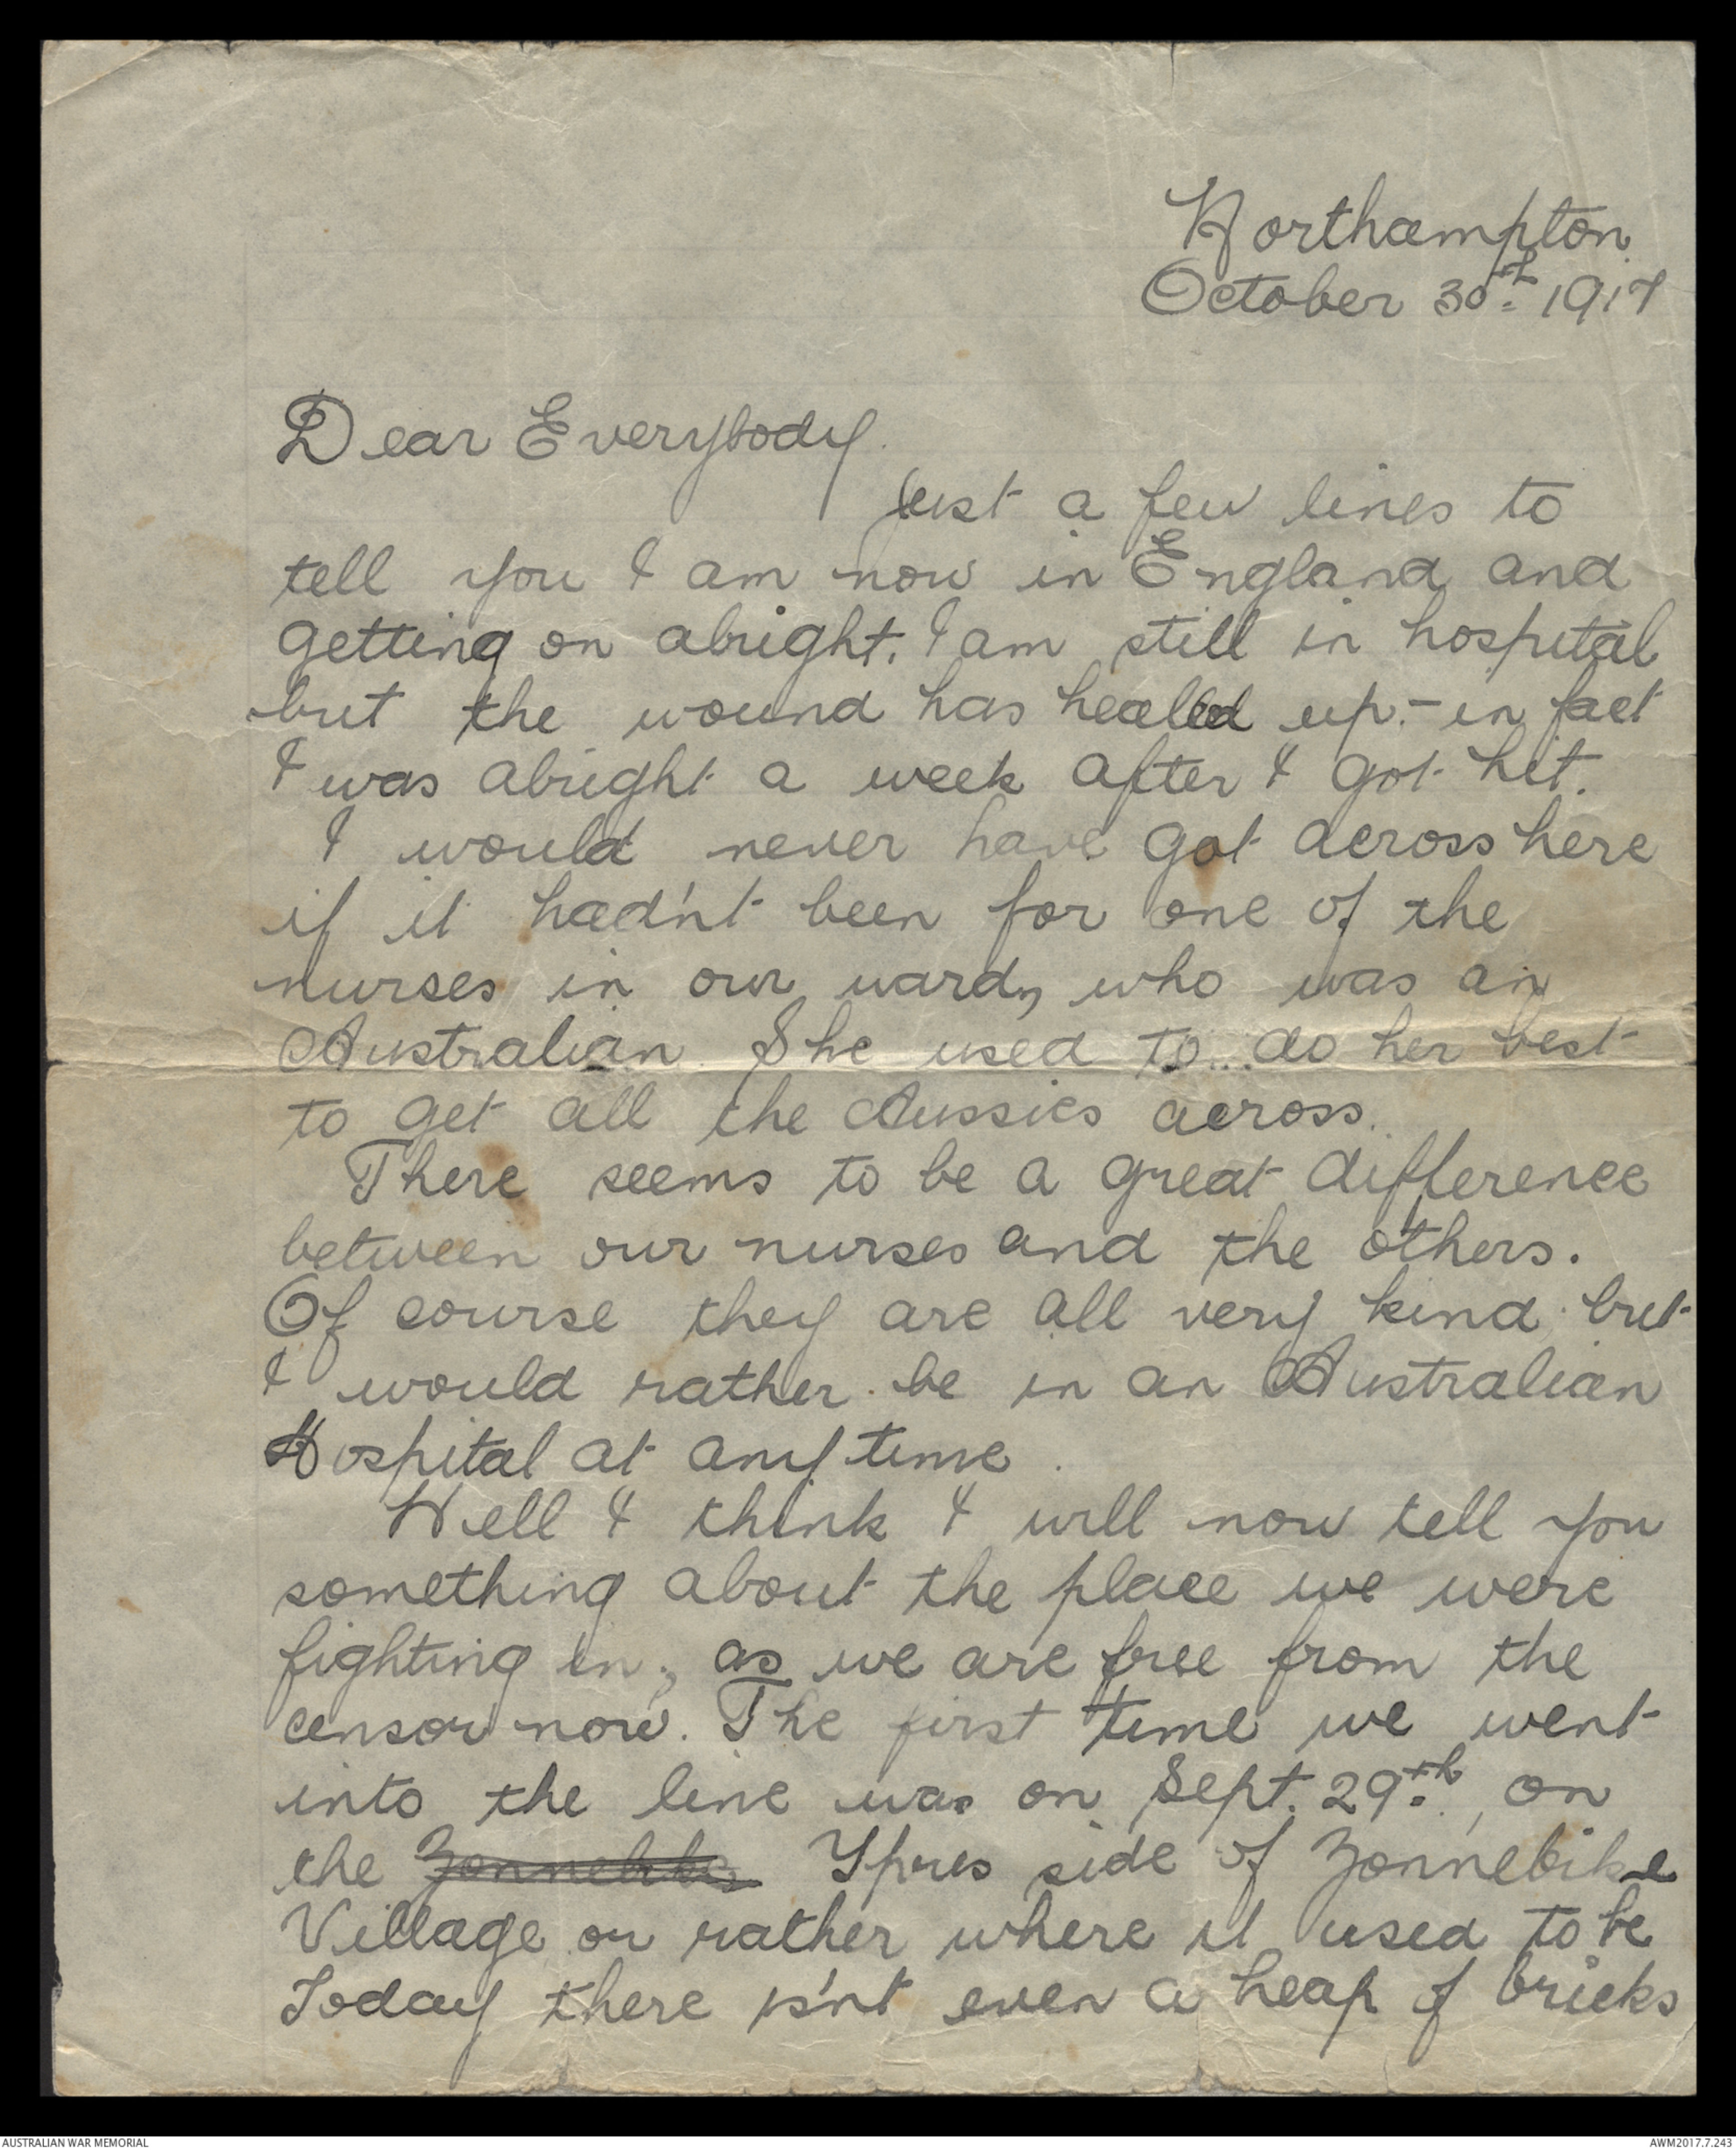 Northampton
October 30th 1917
Dear Everybody.
Just a few lines to
tell you I am now in England and
getting on alright. I am still in hospital
but the wound has healed up - in fact
I was alright a week after I got hit.
I would never have got across here
if it hadn't been for one of the
nurses in our ward, who was an
Australian. She used to do her best
to get all the Aussies across.
There seems to be a great difference
between our nurses and the others.
Of course they are all very kind but
I would rather be in an Australian
Hospital at any time.
Well I think I will now tell you
something about the place we were
fighting in, as we are free from the
censor now. The first time we went
into the line was on Sept. 29th, on
the Zonnebike Ypres side of Zonnebike
Village or rather where it used to be
Today there isn't even a heap of bricks
AUSTRALIAN WAR MEMORIAL
AWM2017.7.243